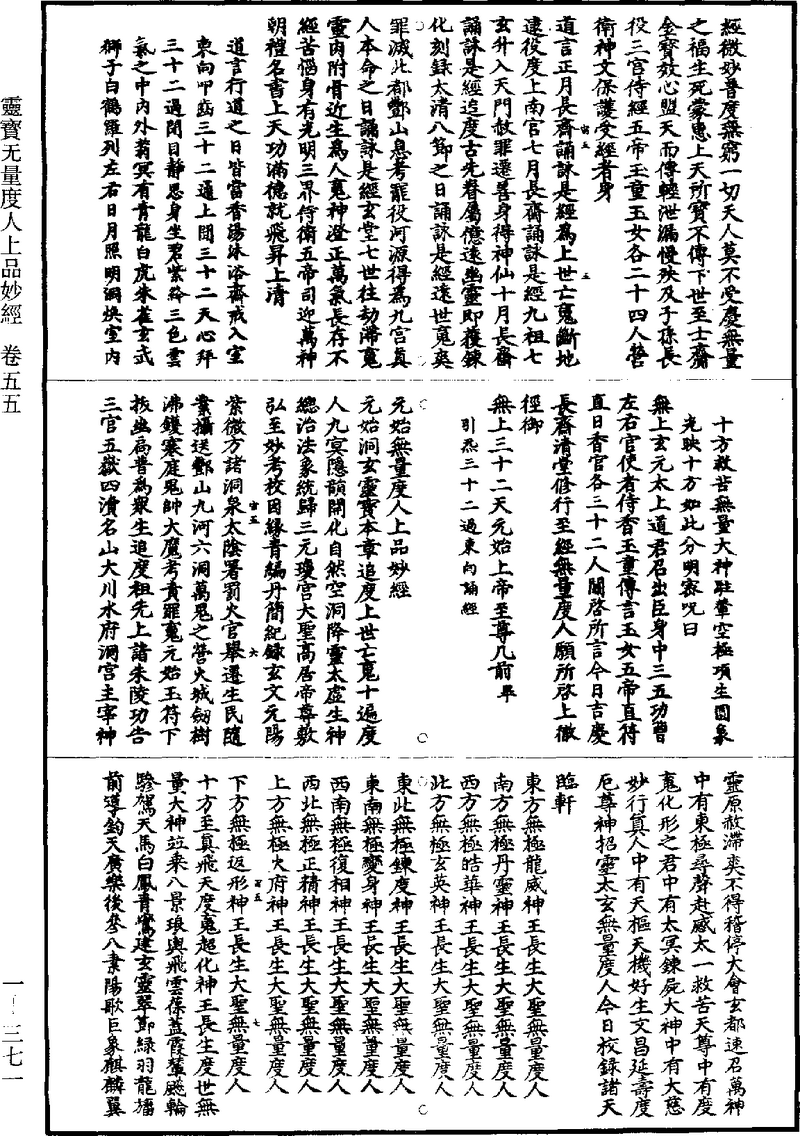 經微妙普度無窮一切天人莫不受慶無量
之福生死蒙惠上天所寶不傳下世至士齎
金寶效心盟天而傳輕泄漏慢殃及子孫長
役三官侍經五帝玉童玉女各二十四人營
衛神文保護受經者身
道言正月長齋誦詠是經為上世亡䰟斷地
逮役度上南宫七月長齋誦詠是經九祖七
玄升入天門赦罪遷善身得神仙十月長齋
誦詠是經追度古先眷屬億遠幽靈即獲鍊
化刻録太清八節之日誦詠是經遠世䰟爽
罪滅北都酆山息考罷役河源得為九宫真
人本命之日誦詠是經玄堂七世往劫滯䰟
靈肉附骨近生為人䰟神澄正萬氣長存不
經苦惱身有光明三界侍衛五帝司迎萬神
朝禮名書上天功滿德就飛昇上清
道言行道之日皆當香湯沐浴齋戒入室
東向叩齒三十二通上聞三十二天心拜
三十二過閉目靜思身坐碧紫絳三色雲
氣之中内外蓊冥有青龍白虎朱雀玄武
獅子白鶴羅列左右日月照明洞焕室内
十方救苦無量大神駐輦空極項生圓象
光映十方如此分明密呪曰
無上玄元太上道君召出臣身中三五功曹
左右官使者侍香玉童傳言玉女五帝直符
直日香官各三十二人關啓所言今日吉慶
長齋清堂修行至經無量度人願所啓上徹
徑御
無上三十二天元始上帝至尊几前畢
引炁三十二過東向誦經
元始無量度人上品妙經
元始洞玄靈寶本章追度上世亡䰟十遍度
人九冥隱韻開化自然空洞降靈太虚生神
總治法象統歸三元瓊宫大聖高居帝尊敷
弘至妙考校因緣青編丹簡紀録玄文元陽
紫微方諸洞泉太陰署罰火官舉遷生民隨
業攝送酆山九河六洞萬鬼之營火城劒樹
沸鑊寒庭鬼帥大魔考責罪䰟元始玉符下
拔幽扃普為衆生追度祖先上諸朱陵功告
三官五嶽四瀆名山大川水府洞宫主宰神
靈原赦滯爽不得稽停大會玄都速召萬神
中有東極尋聲赴感太一救苦天尊中有度
䰟化形之君中有太冥鍊屍大神中有大慈
妙行真人中有天樞天機好生文昌延壽度
厄尊神招靈太玄無量度人今日校録諸天
臨軒
東方無極龍威神王長生大聖無量度人
南方無極丹靈神王長生大聖無量度人
西方無極皓華神王長生大聖無量度人
北方無極玄英神王長生大聖無量度人
東北無極鍊度神王長生大聖無量度人
東南無極變身神王長生大聖無量度人
西南無極復相神王長生大聖無量度人
西北無極正精神王長生大聖無量度人
上方無極火府神王長生大聖無量度人
下方無極返形神王長生大聖無量度人
十方至真飛天度䰟超化神王長生度世無
量大神竝乘八景琅輿飛雲葆蓋霞輦飈輪
驂駕天馬白鳳青鸞建玄靈翠節緑羽龍旛
前導鈞天廣樂後參八素陽歌巨象麒麟翼
靈寳无量度人上品妙經 卷五五
一—三七一